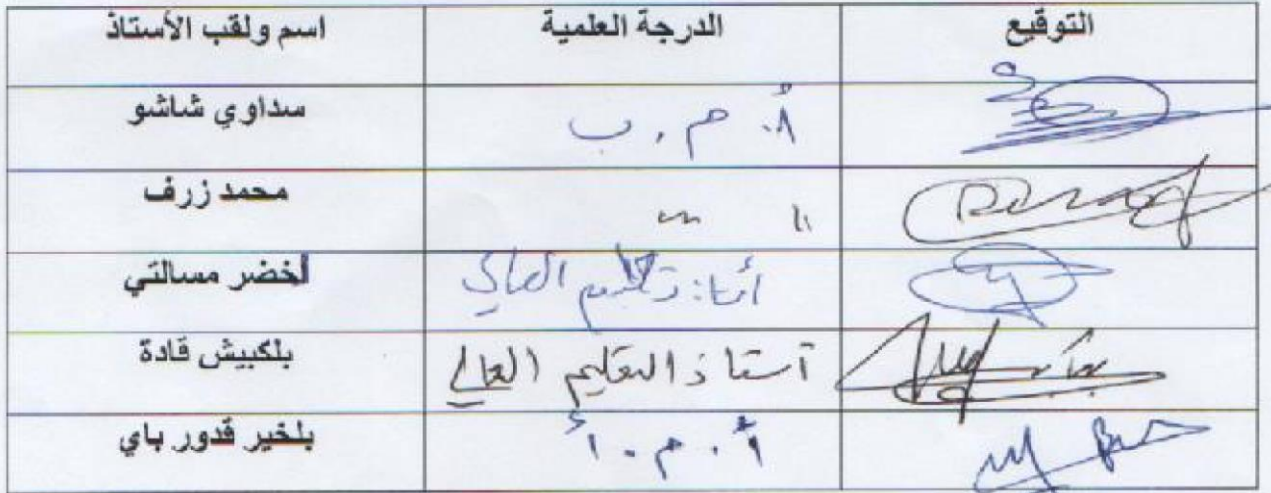 اسم ولقب الأستاذ الدرجة العلمية التوقيع
سداوي شاشو أ. م. ب
محمد زرف // //
لخضر مسالتي أستاذ تعليم العالي
بلكبيش قادة أستاذ التعليم العالي
بلخير قدور باي أ. م. أ